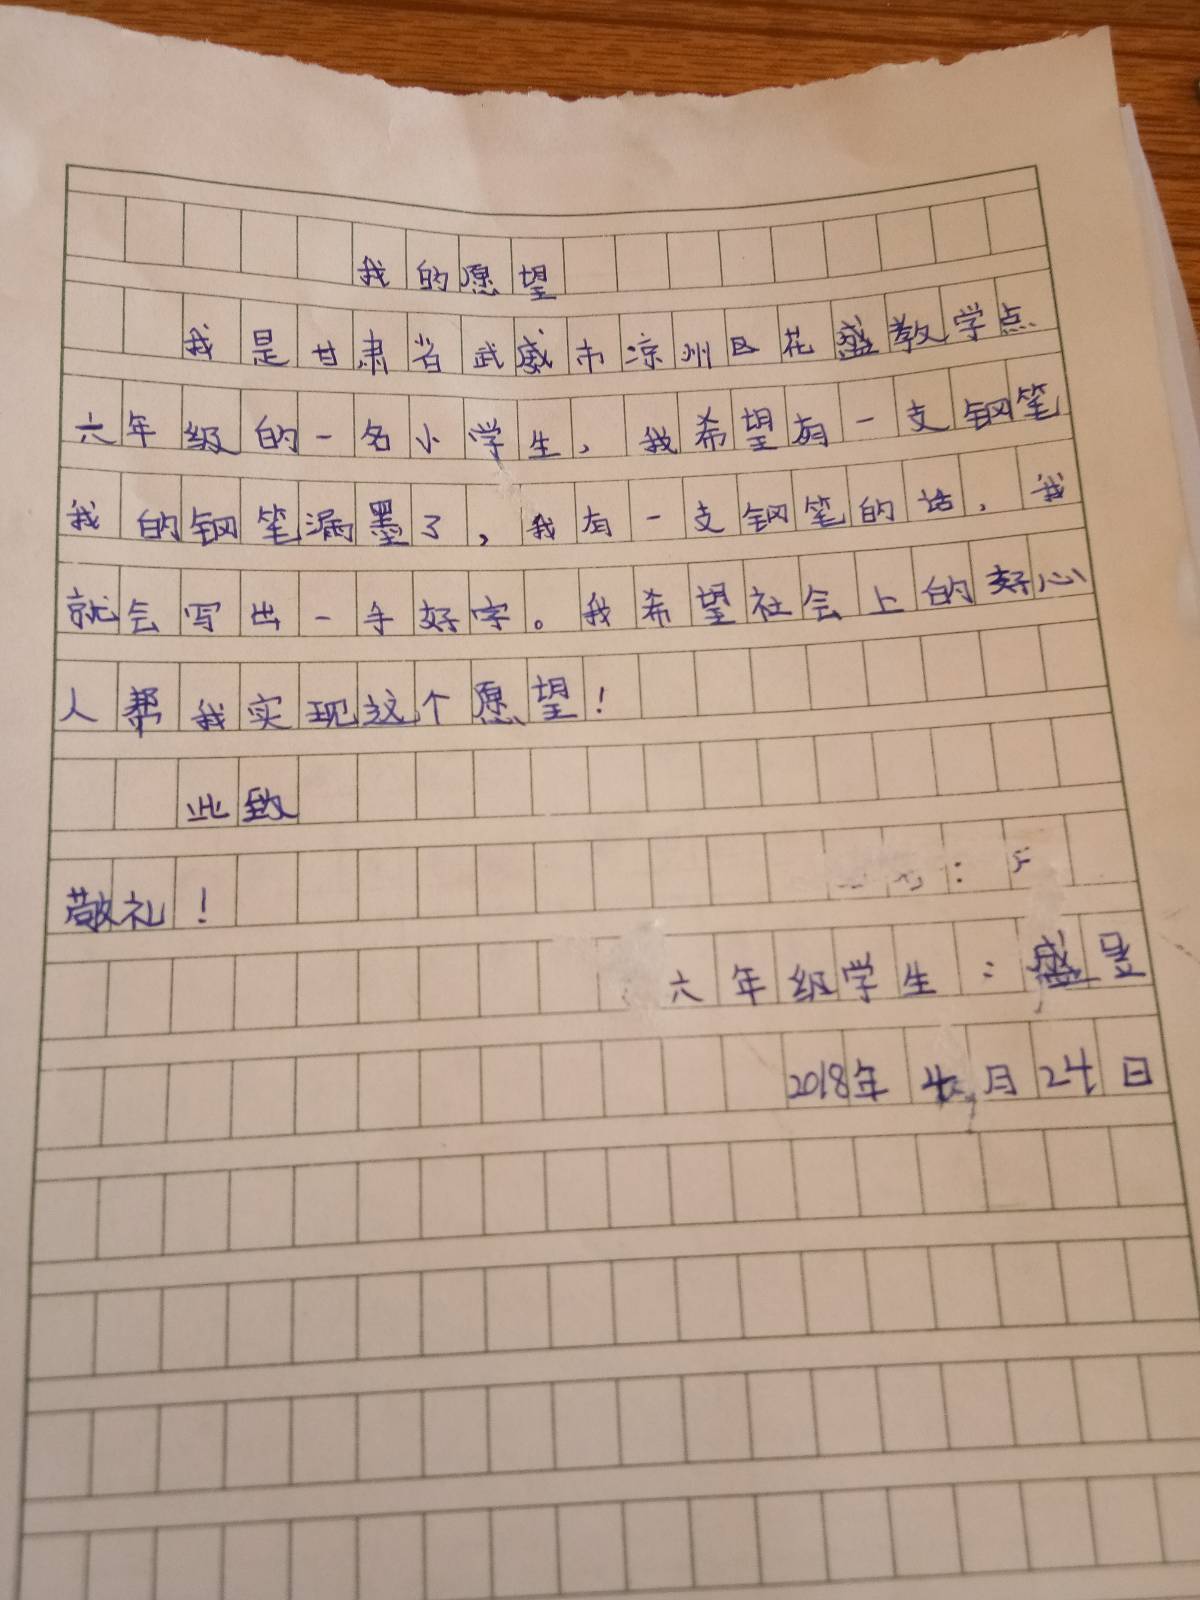 我的愿望
我是甘肃省武威市凉州区花盛教学点
六年级的一名小学生，我希望有一支钢笔
我的钢笔漏墨了，我有一支钢笔的话，我
就会写出一手好字。我希望社会上的好心
人帮我实现这个愿望！
此致
敬礼！
六年级学生：盛昱
2018年4月24日